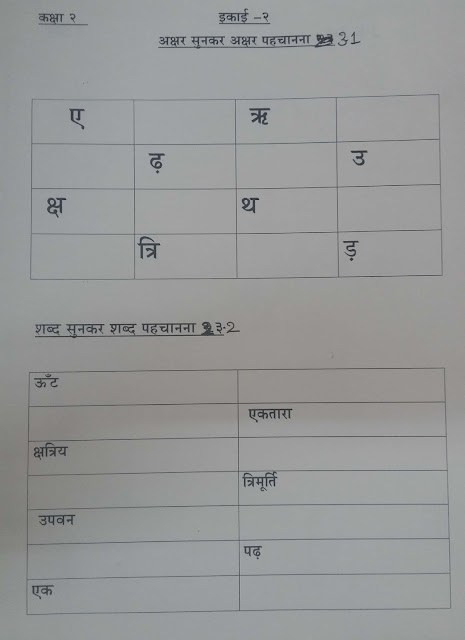 कक्षा २ इकाई -२
अक्षर सुनकर अक्षर पहचानना 3.1
ए ऋ
ढ़ उ
क्ष थ
त्रि ड़
शब्द सुनकर शब्द पहचानना ३.2
ऊँट
एकतारा
क्षत्रिय
त्रिमूर्ति
उपवन
पढ़
एक